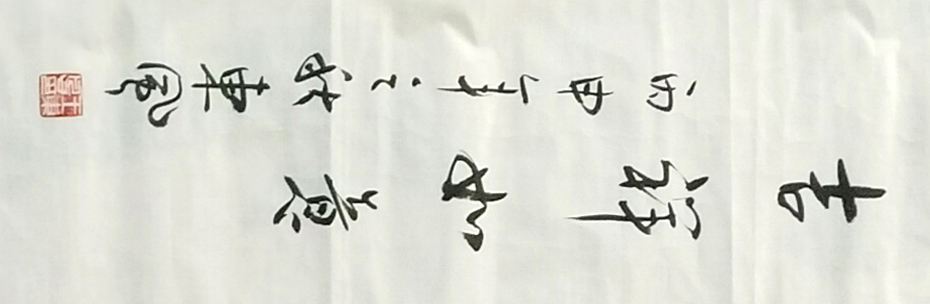 吉祥如意
丙申年之秋东风